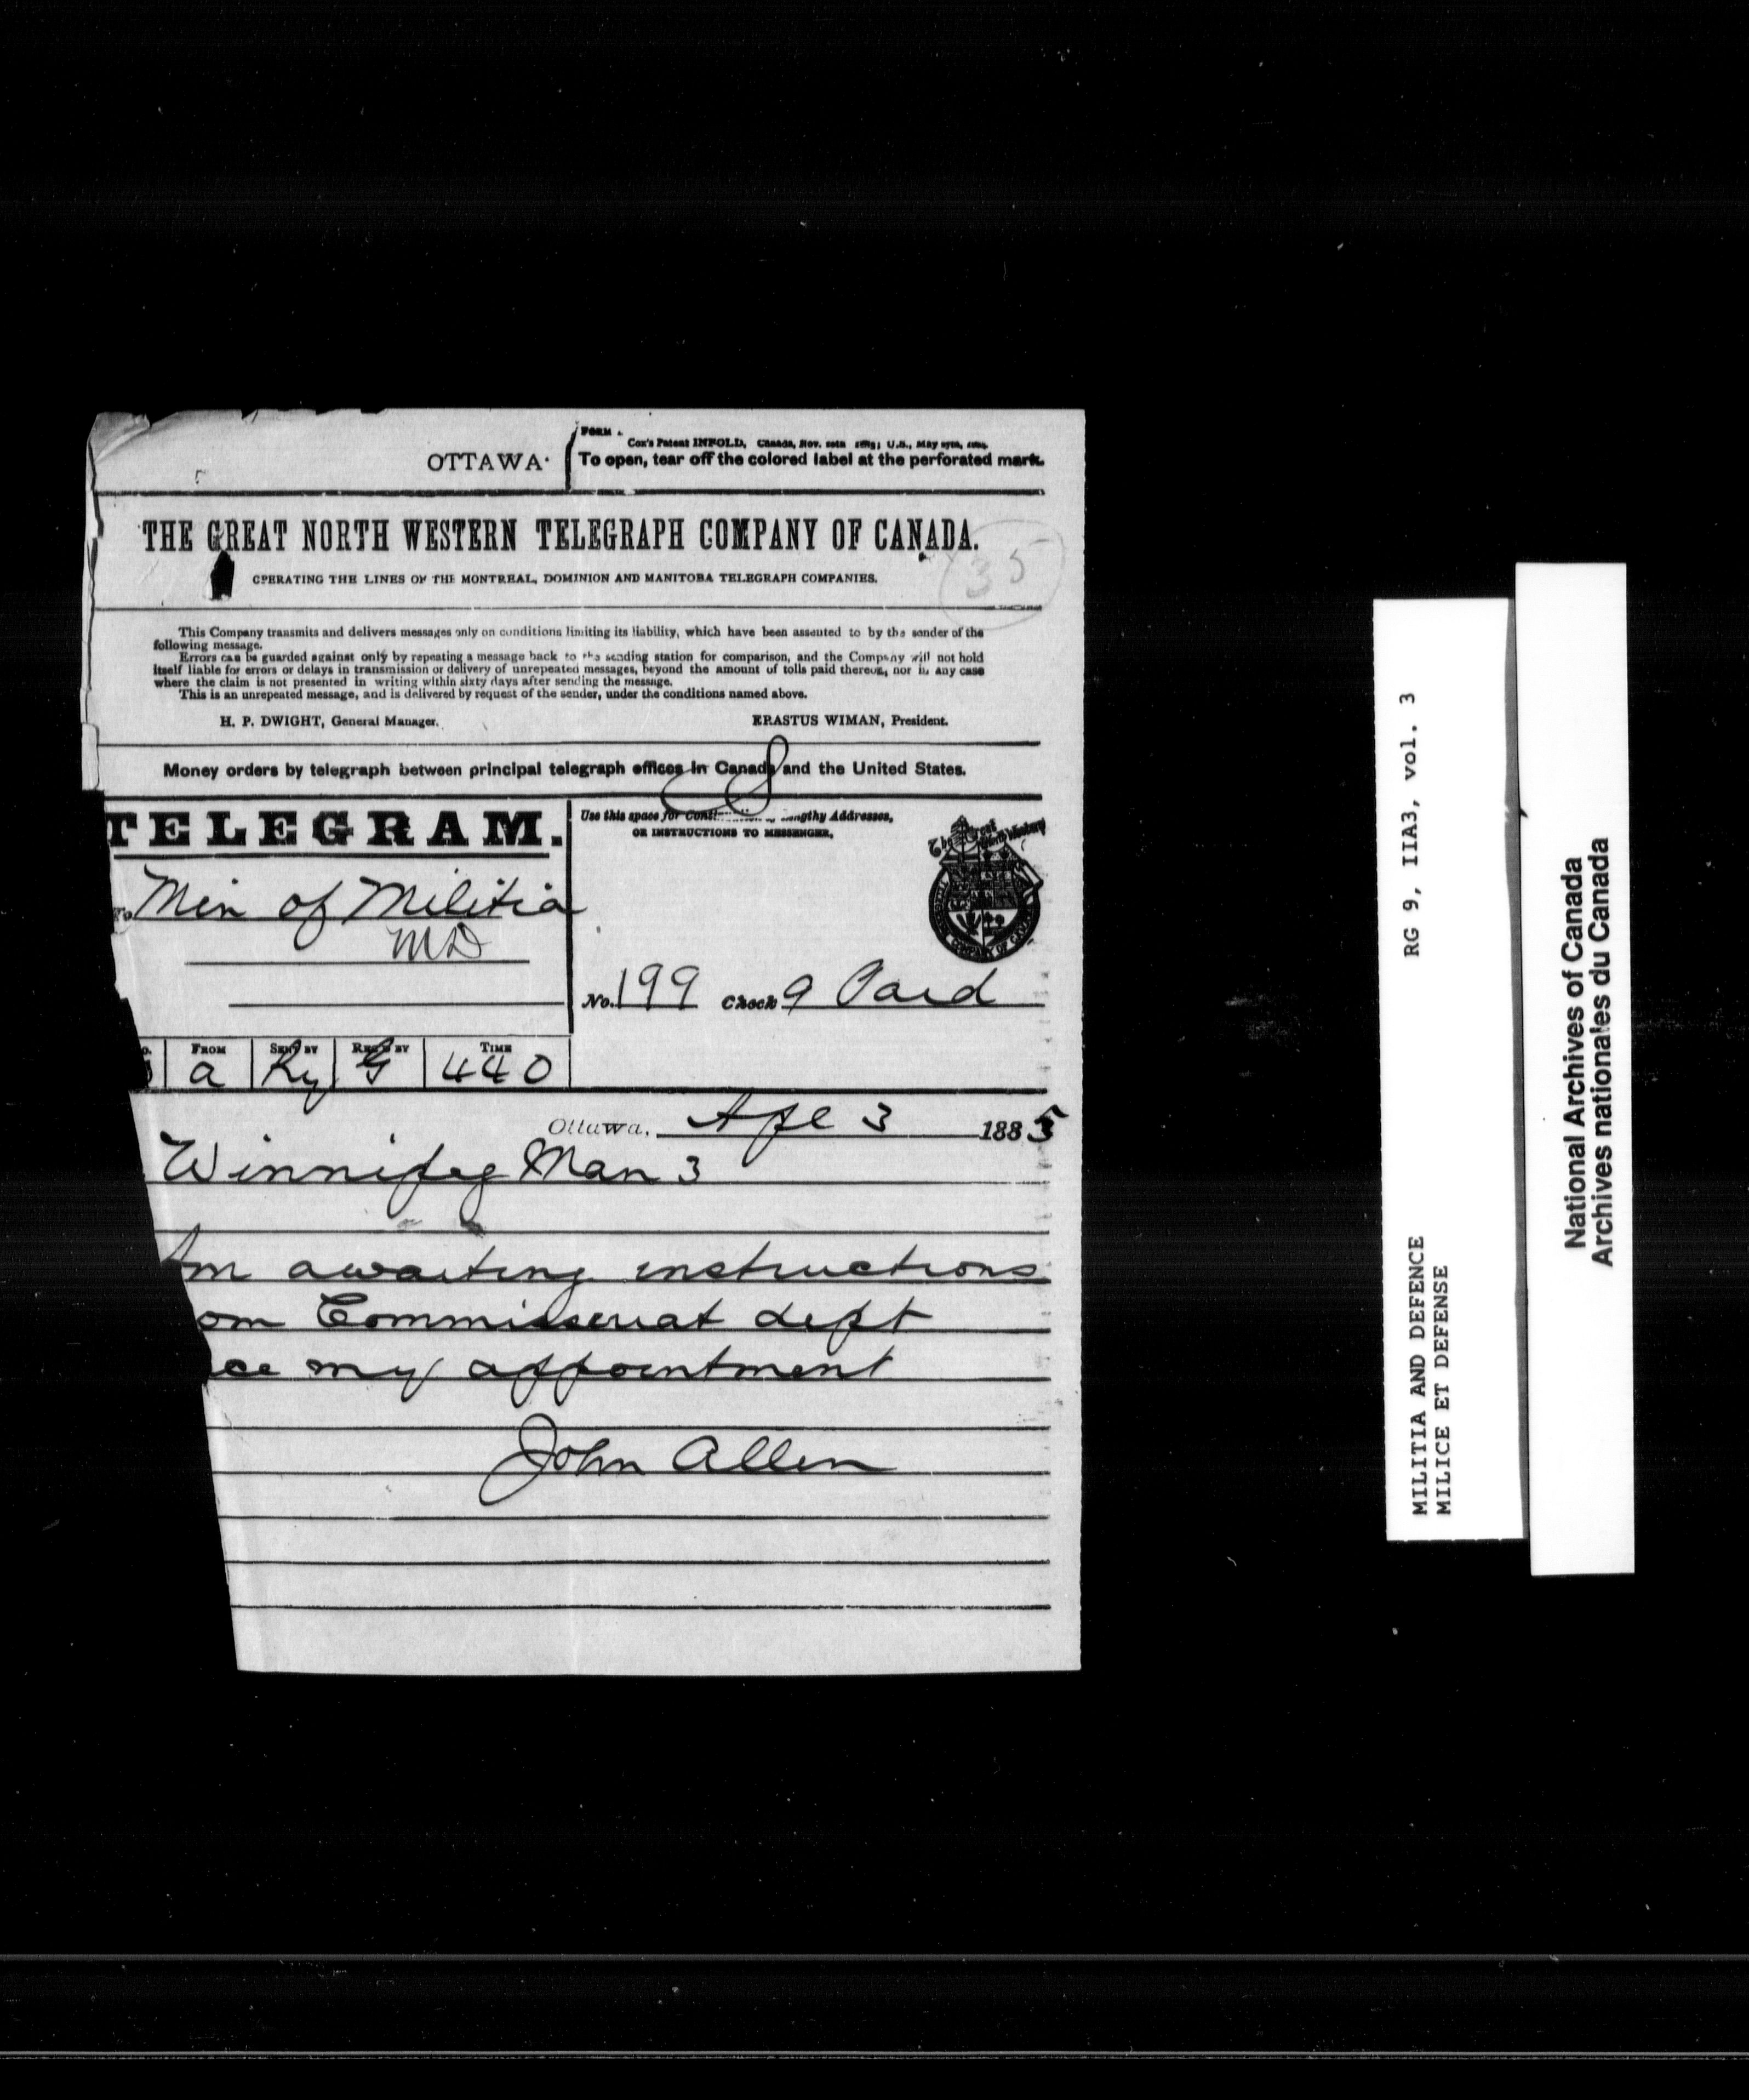 FORM
Cox's Patent INFOLD, Canada, Nov. U.S., May
OTTAWA.
To open, tear off the colored label at the perforated mark.
THE GREAT NORTH WESTERN TELEGRAPH COMPANY OF CANADA.
35
OPERATING THE LINES OF THE MONTREAL, DOMINION AND MANITOBA TELEGRAPH COMPANIES.
This Company transmits and delivers messages only on conditions limiting its liability, which have been assented to by the sender of the
following message.
Errors can be guarded against only by repeating a message back to the sending station for comparison, and the Company will not hold
itself liable for errors or delays in transmission or delivery of unrepeated messages, beyond the amount of tolls paid thereon, nor in any case
where the claim is not presented in writing within sixty days after sending the message.
This is an unrepeated message, and is delivered by request of the sender, under the conditions named above.
H. P. DWIGHT, General Manager. ERASTUS WIMAN, President.
Money orders by telegraph between principal telegraph offices in Canada and the United States.
TELEGRAM.
Use this space for Lengthy Addresses,
OR INSTRUCTIONS TO MESSENGER,
To Min of Militia
MD
No. 199 Check 9 Paid
FROM SENT BY REC'D BY TIME
a Ry G 440
Ottawa, Apl 3 1885
Winnipeg Man 3
Am awaiting instructions
om Commisseriat dept
ce my appointment
John Allen
RG 9, IIA3, vol. 3
MILITIA AND DEFENCE
MILICE ET DEFENSE
National Archives of Canada
Archives nationales du Canada